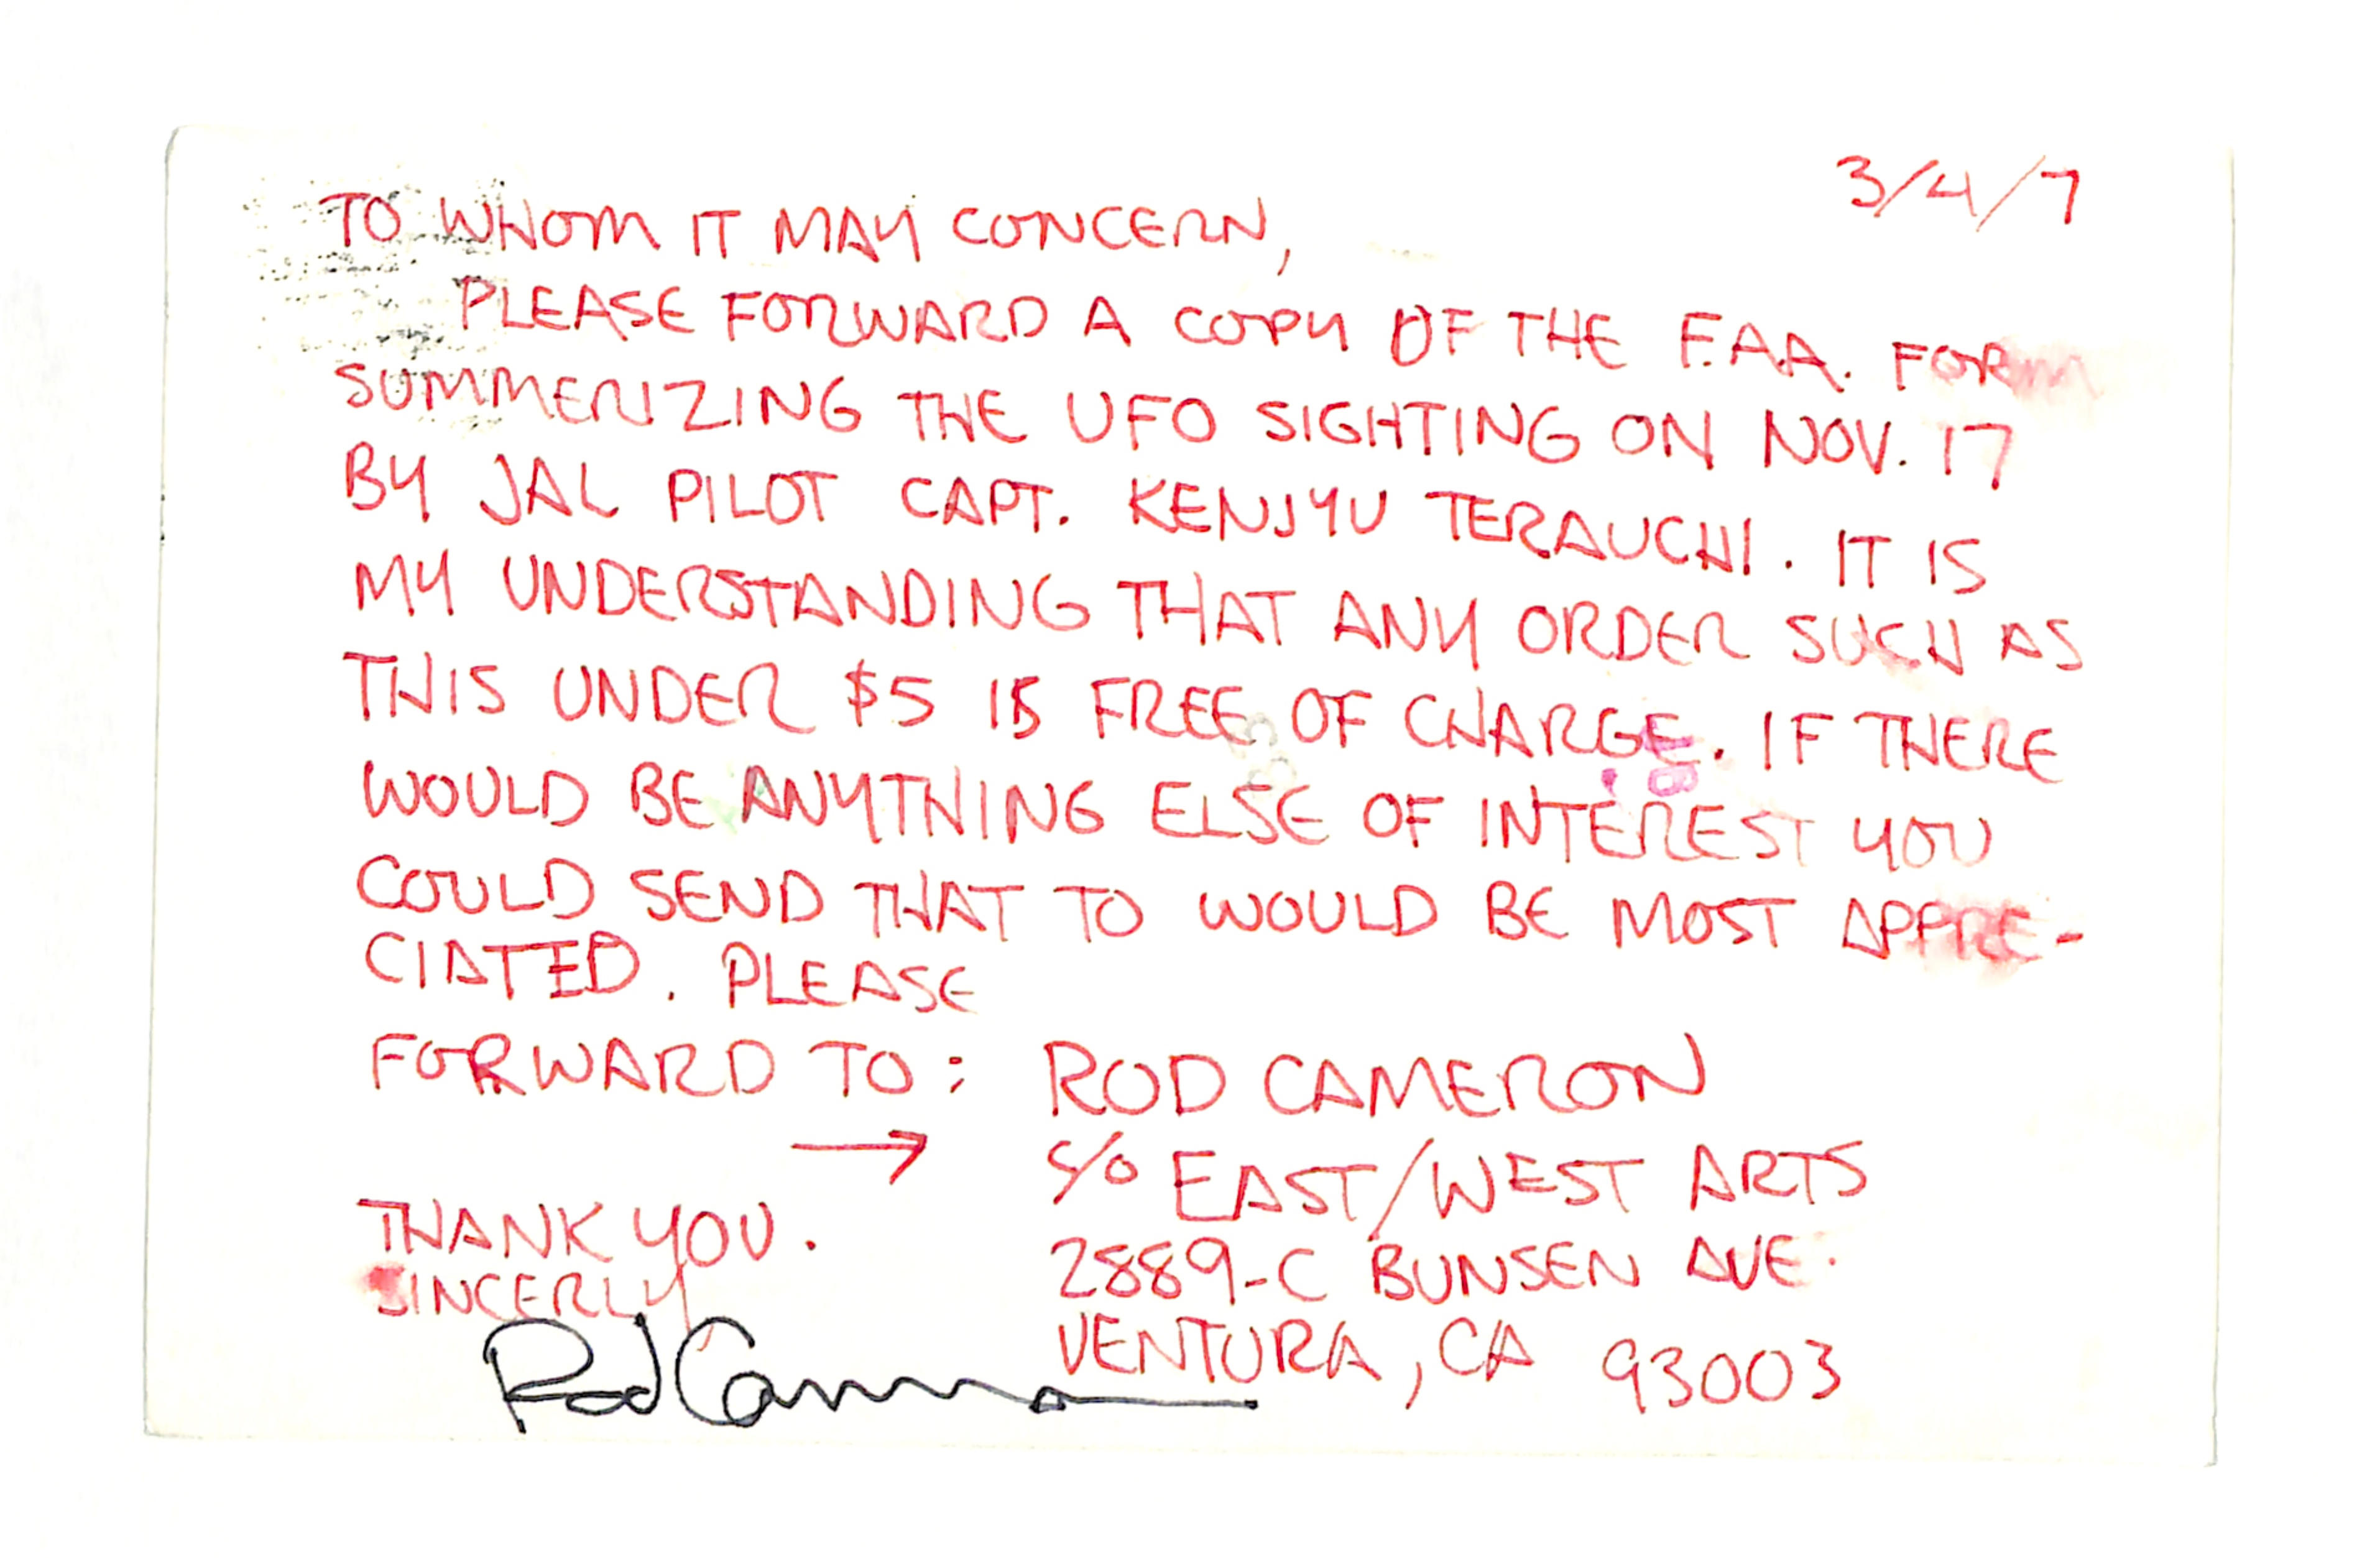 3/4/7
TO WHOM IT MAY CONCERN,
PLEASE FORWARD A COPY OF THE F.A.A. FORM
SUMMERIZING THE UFO SIGHTING ON NOV. 17
BY JAL PILOT CAPT. KENJYU TERAUCHI. IT IS
MY UNDERSTANDING THAT ANY ORDER SUCH AS
THIS UNDER $5 IS FREE OF CHARGE. IF THERE
WOULD BE ANYTHING ELSE OF INTEREST YOU
COULD SEND THAT TO WOULD BE MOST APPRE-
CIATED. PLEASE
FORWARD TO: ROD CAMERON
→ c/o EAST/WEST ARTS
THANK YOU. 2889-C BUNSEN AVE.
SINCERLY VENTURA, CA 93003
Rod Cameron